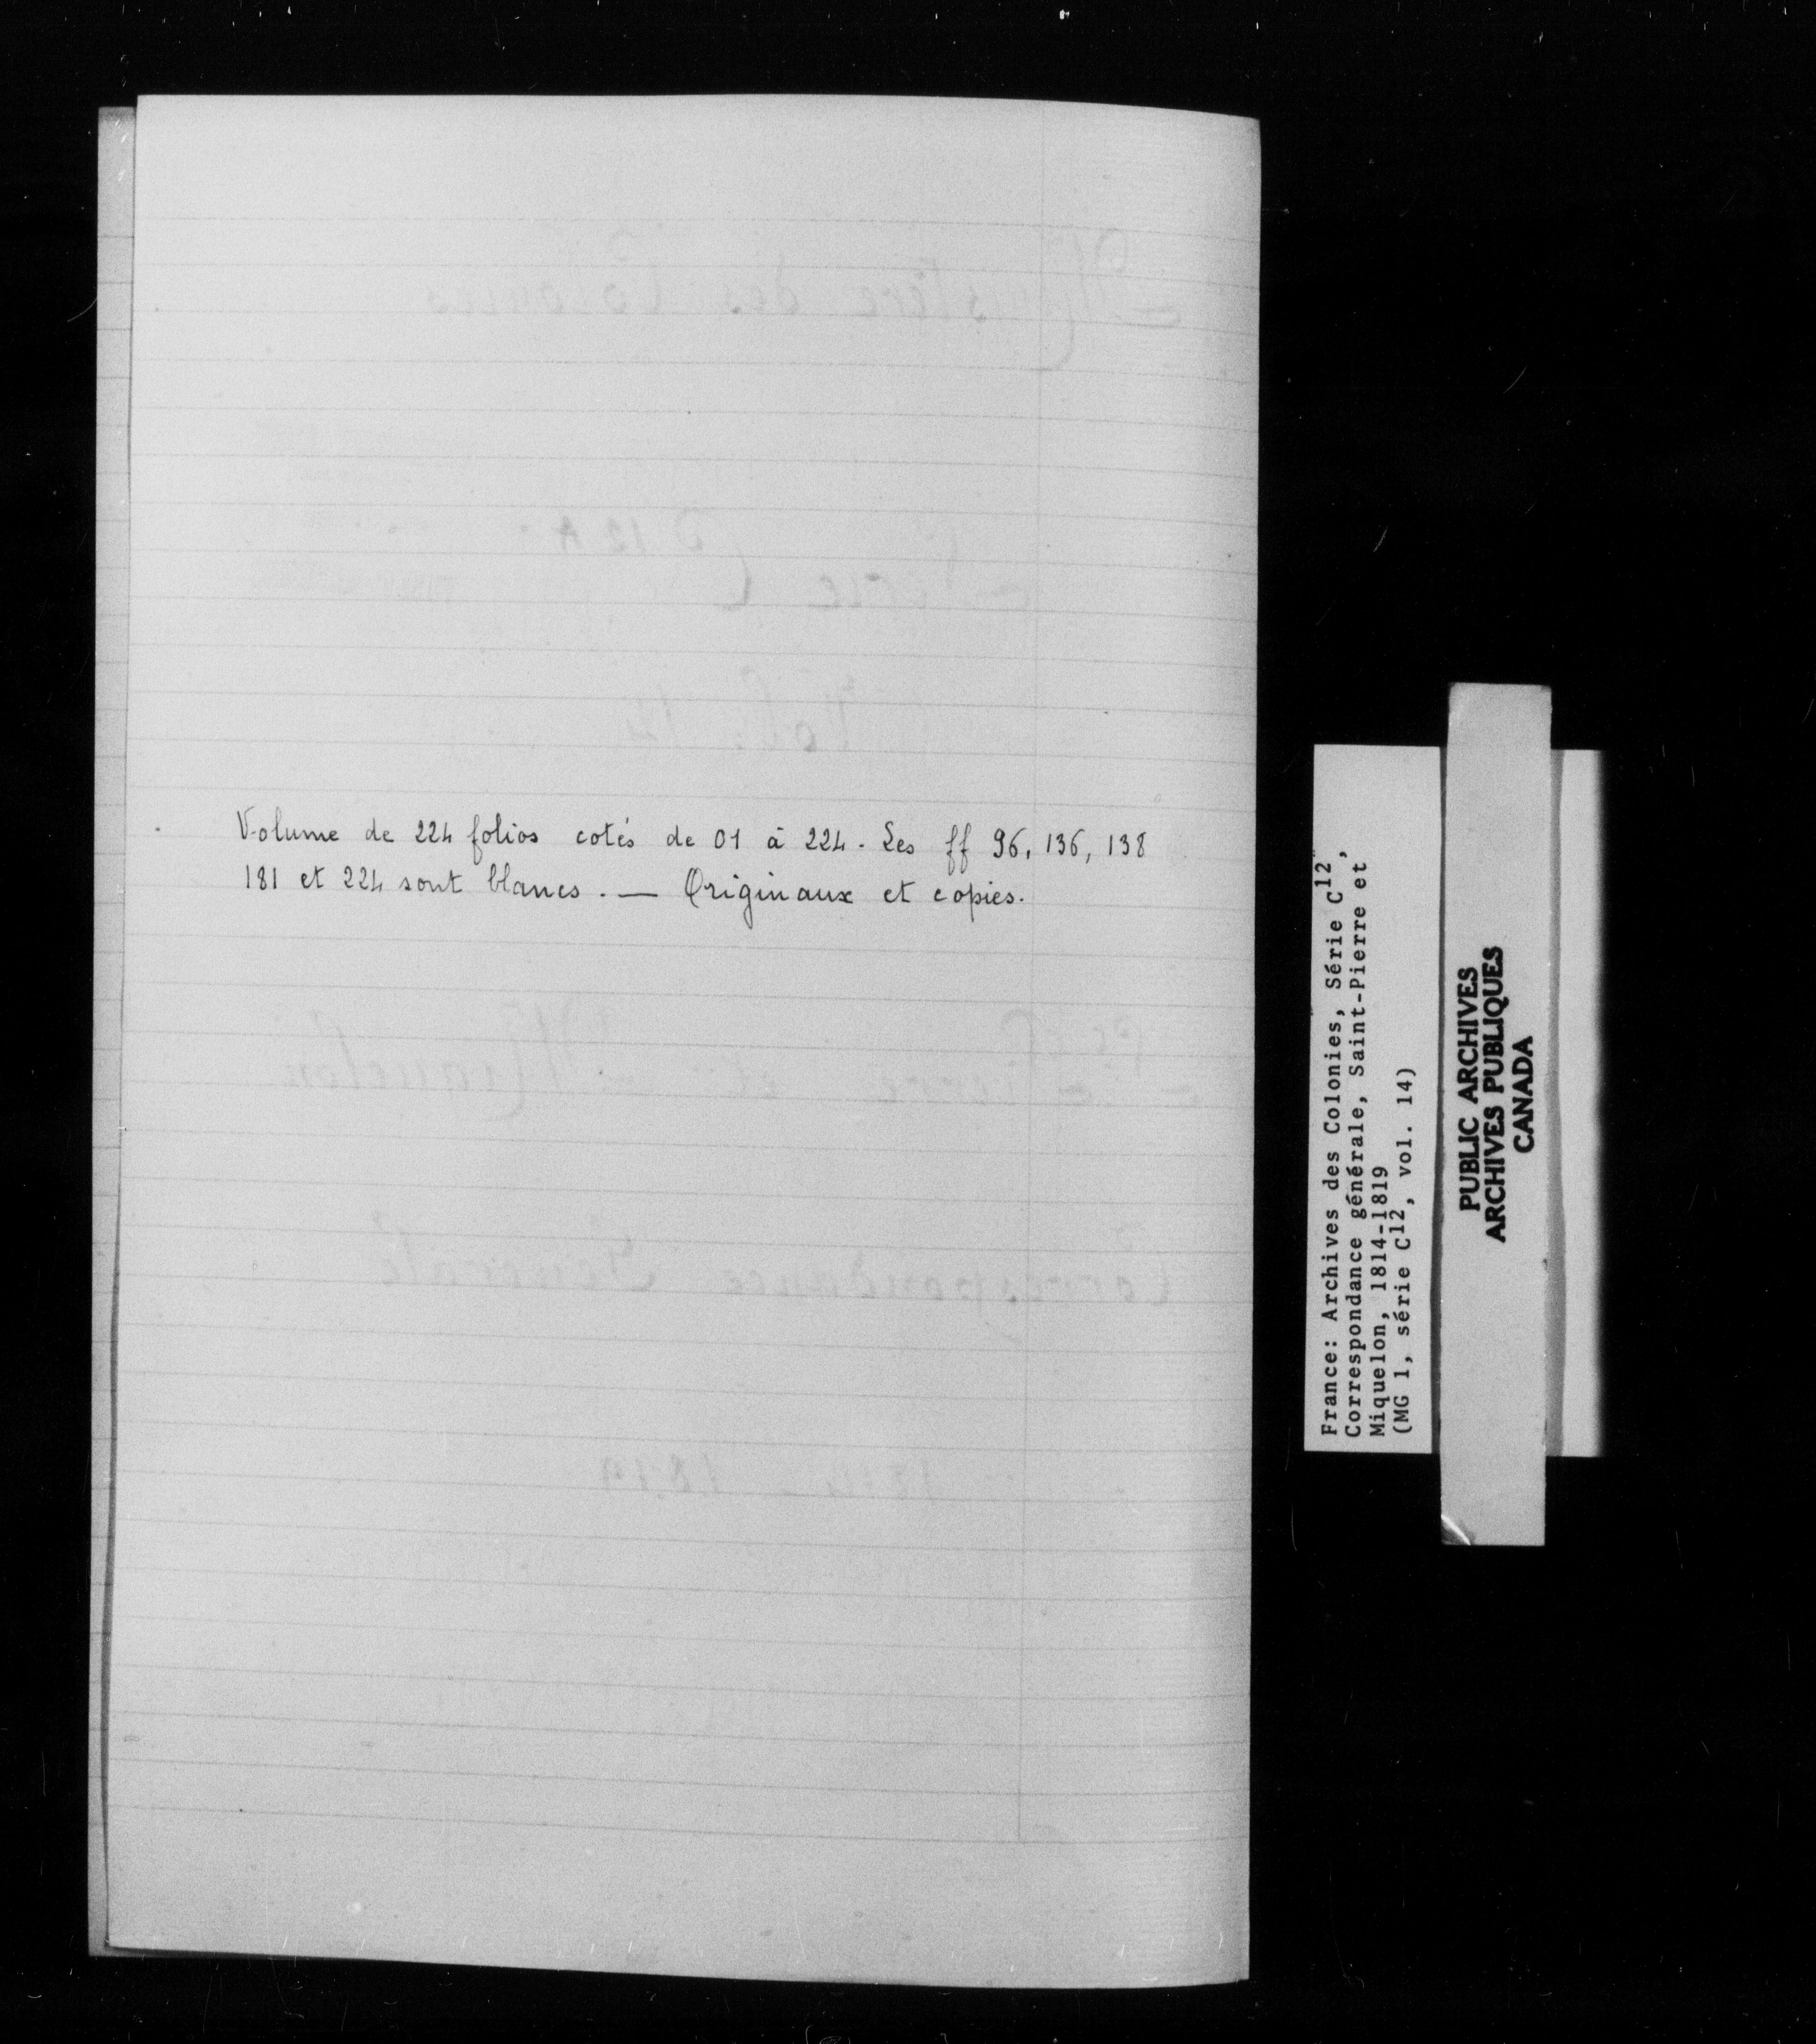 Volume de 224 folios cotés de 01 à 224. Les ff 96, 136, 138
181 et 224 sont blancs. — Originaux et copies.
France: Archives des Colonies, Série C12,
Correspondance générale, Saint-Pierre et
Miquelon, 1814-1819
(MG 1, série C12, vol. 14)
PUBLIC ARCHIVES
ARCHIVES PUBLIQUES
CANADA